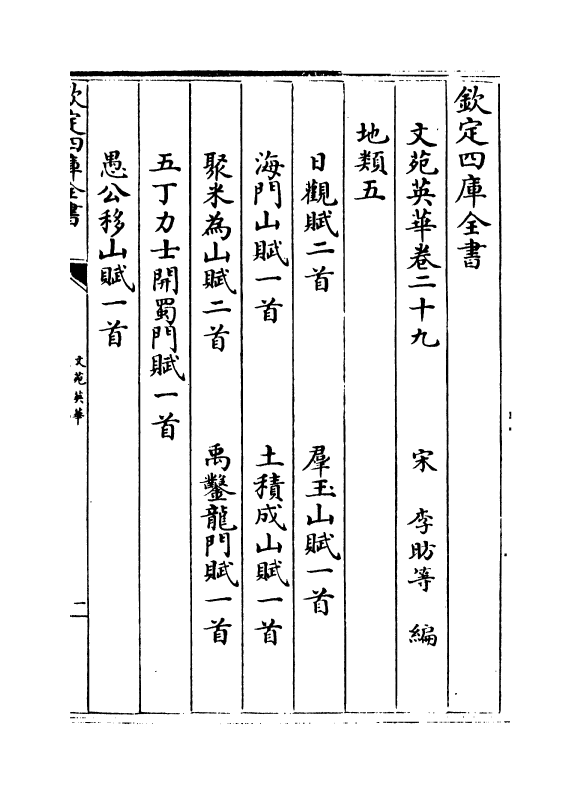 欽定四庫全書
文苑英華卷二十九　宋　李昉等　編
地類五
日觀賦二首　羣玉山賦一首
海門山賦一首　土積成山賦一首
聚米為山賦二首　禹鑿龍門賦一首
五丁力士開蜀門賦一首
愚公移山賦一首
欽定四庫全書
文苑英華
二